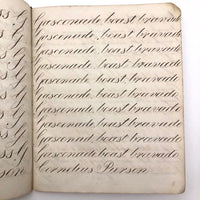 Gasconade, boast bravado
Gasconade, boast bravado
Gasconade, boast bravado
Gasconade, boast bravado
Gasconade, boast bravado
Gasconade, boast bravado
Gasconade, boast bravado
Gasconade, boast bravado
Gasconade boast bravado
Cornelius Pierson